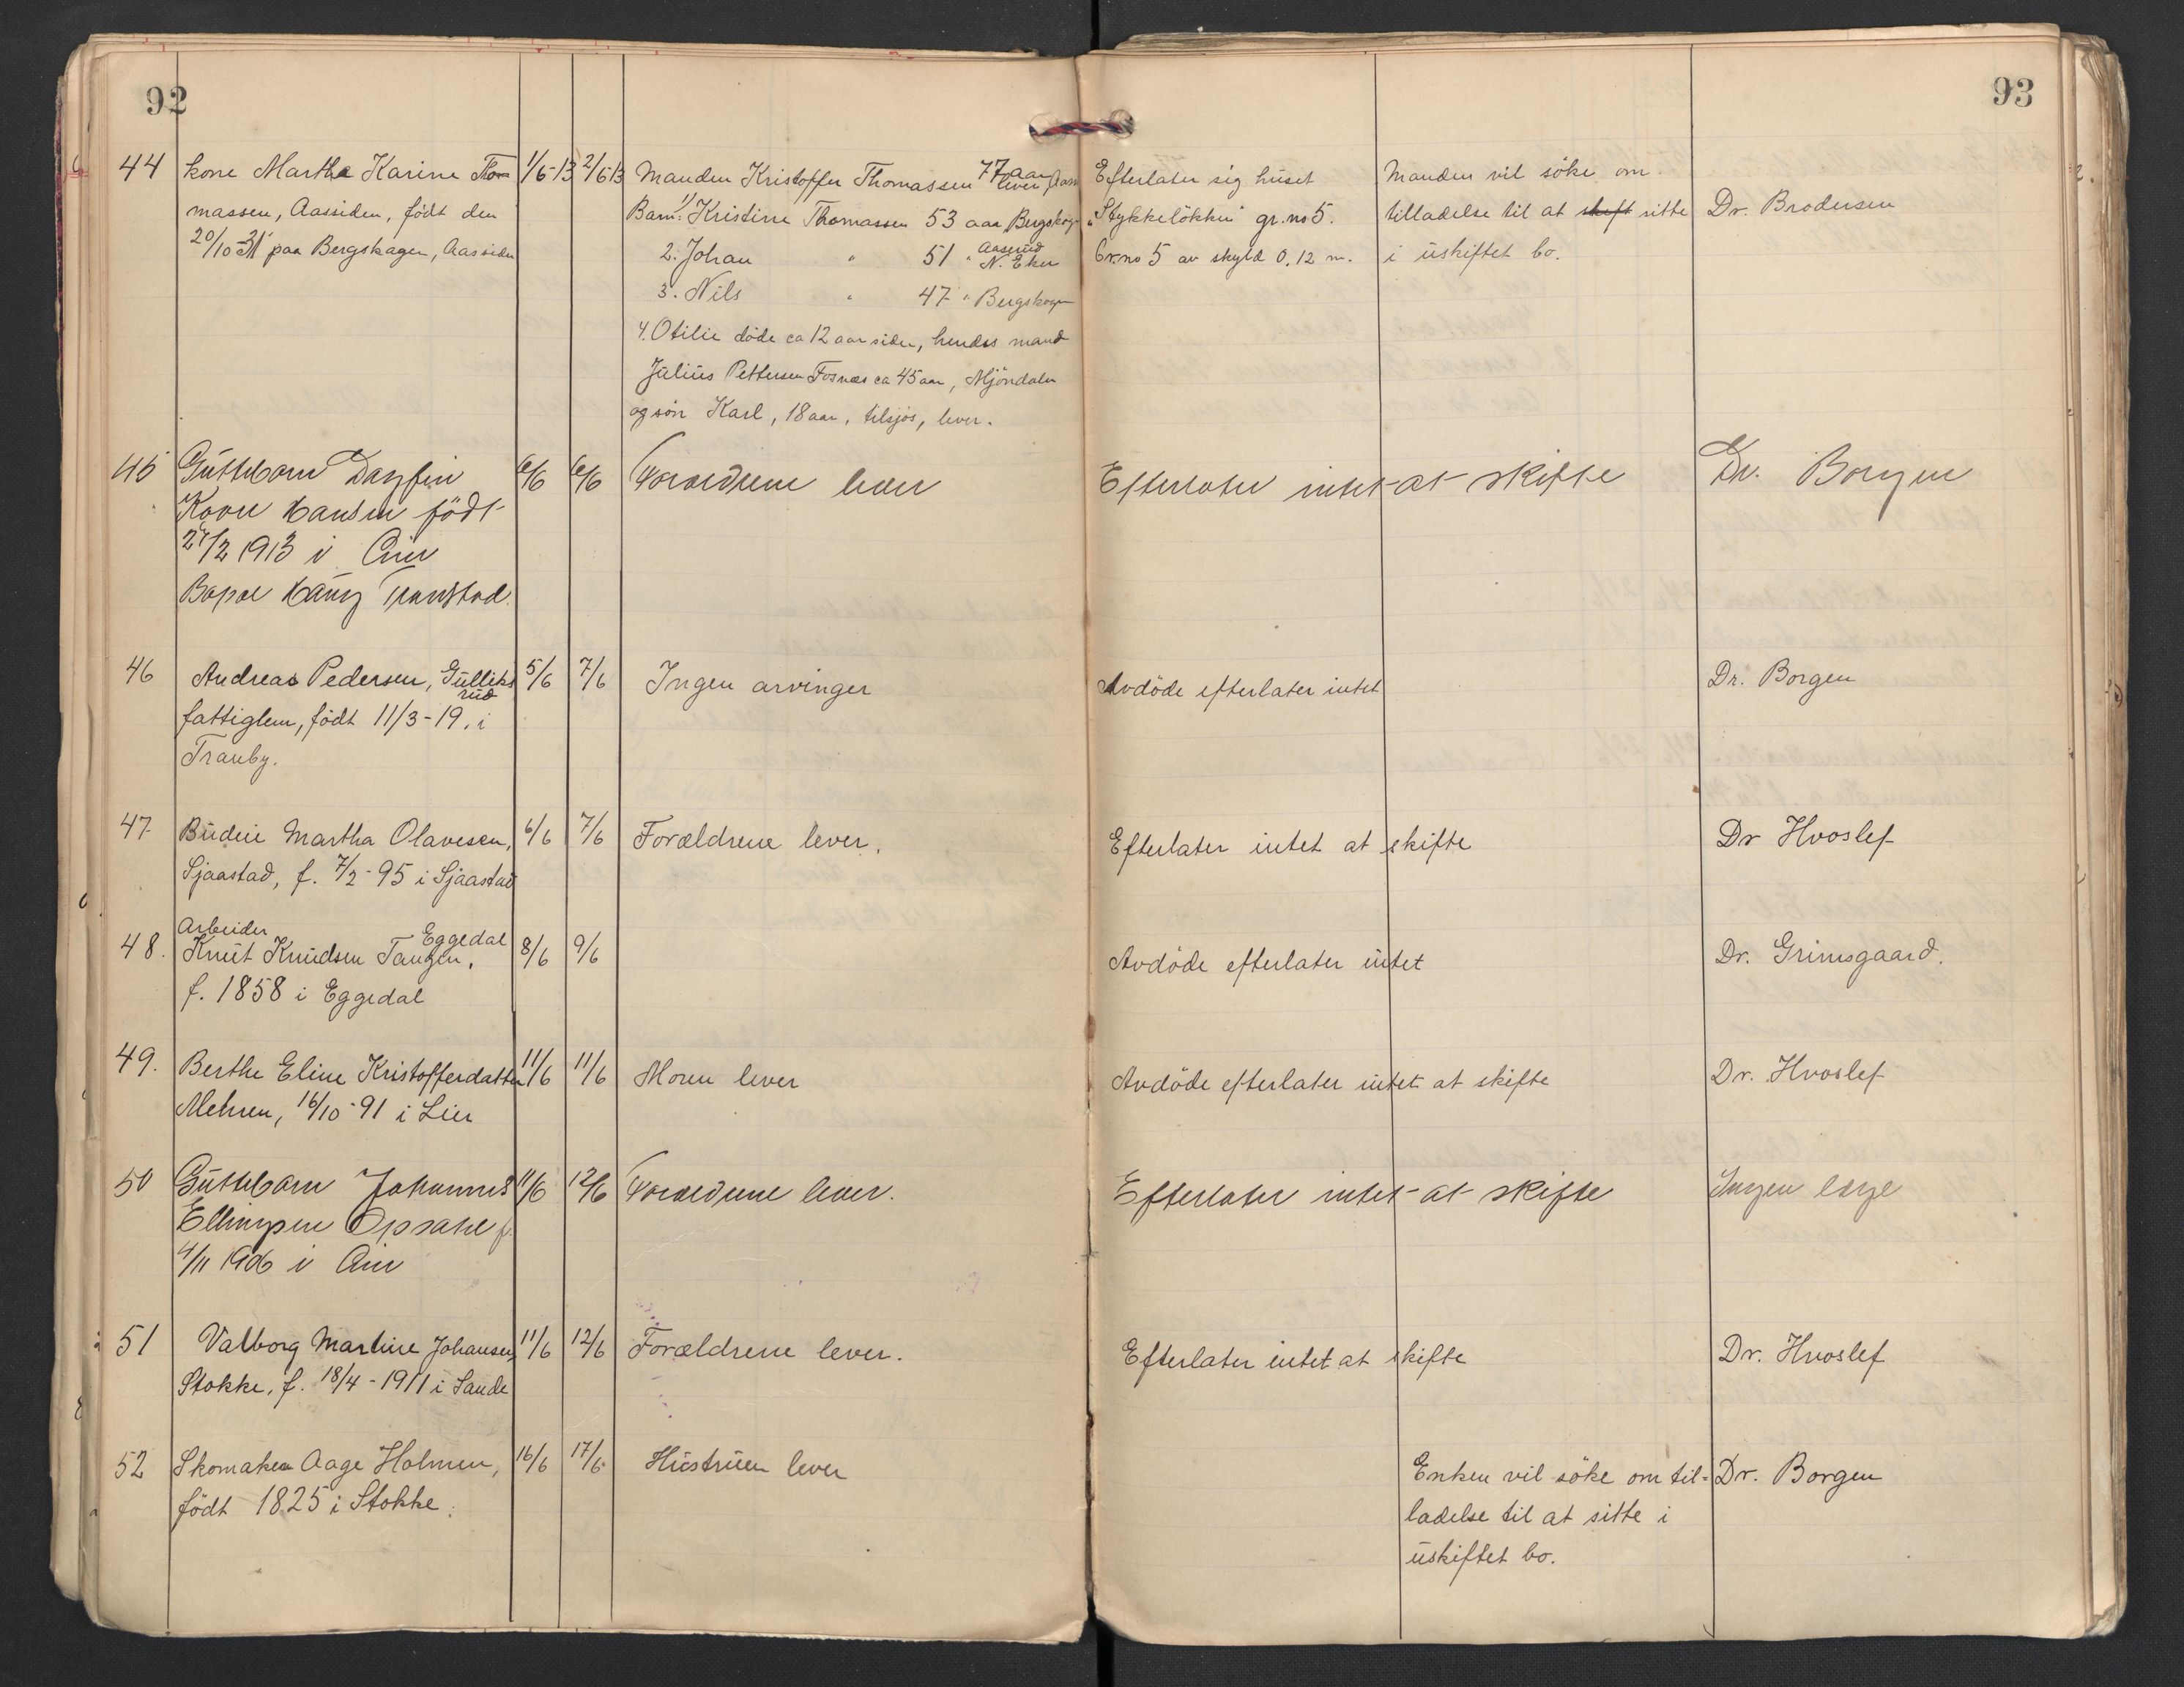 92
93
44 kone Martha Karine Tho- 1/6-13 2/6 13
massen, Aassiden, født den
20/10 31 paa Bergskagen, Aassiden
Manden Kristoffer Thomassen 77 aar lever,
Barn: 1/ Kristine Thomassen 53 aar, Bergskog
2. Johan " 51 " Aaserud N. Eker
3. Nils " 47 " Bergskogen
4. Otilie døde ca 12 aar siden, hendes mand
Julius Pettersen Fosnæs ca 45 aar, Mjöndalen
og sön Karl, 18 aar, tilsjös, lever.
Efterlater sig huset
"Stykkelökken" gr. no 5.
br. no 5 av skyld 0.12 m.
Manden vil söke om
tilladelse til at skift sitte
i uskiftet bo.
Dr. Brodersen
45 Guttebarn Dagfin 6/6 6/6 Forældrene lever Efterlater intet at skifte Dr. Borgen
Hansen født
2/2 1913 i Lier
Transtad
46 Andreas Pedersen, Gulliks 5/6 7/6 Ingen arvinger Avdöde efterlater intet Dr. Borgen
rud
fattiglem, født 11/3-19. i
Tranby.
47 Budeie Martha Olavesen, 6/6 7/6 Forældrene lever. Efterlater intet at skifte Dr Hvoslef
Sjaastad, f. 7/2-95 i Sjaastad
Arbeider Eggedal
48. Knut Knudsen Tangen, 8/6 9/6 Avdöde efterlater intet Dr. Grimsgaard.
f. 1858 i Eggedal
49. Berthe Eline Kristofferdatter 11/6 11/6 Moren lever Avdöde efterlater intet at skifte Dr. Hvoslef
Mehren, 16/10-91 i Lier
50 Guttebarn Johannes 11/6 12/6 Forældrene lever. Efterlater intet at skifte Ingen læge
Ellingsen Opsahl f.
4/11 1906 i Lier
51 Valborg Martine Johansen, 11/6 12/6 Forældrene lever. Efterlater intet at skifte Dr. Hvoslef
Stokke, f. 18/4-1911 i Sande
52 Skomaker Aage Holmen, 16/6 17/6 Hustruen lever Enken vil söke om til- Dr. Borgen
født 1825 i Stokke.
ladelse til at sitte i
uskiftet bo.